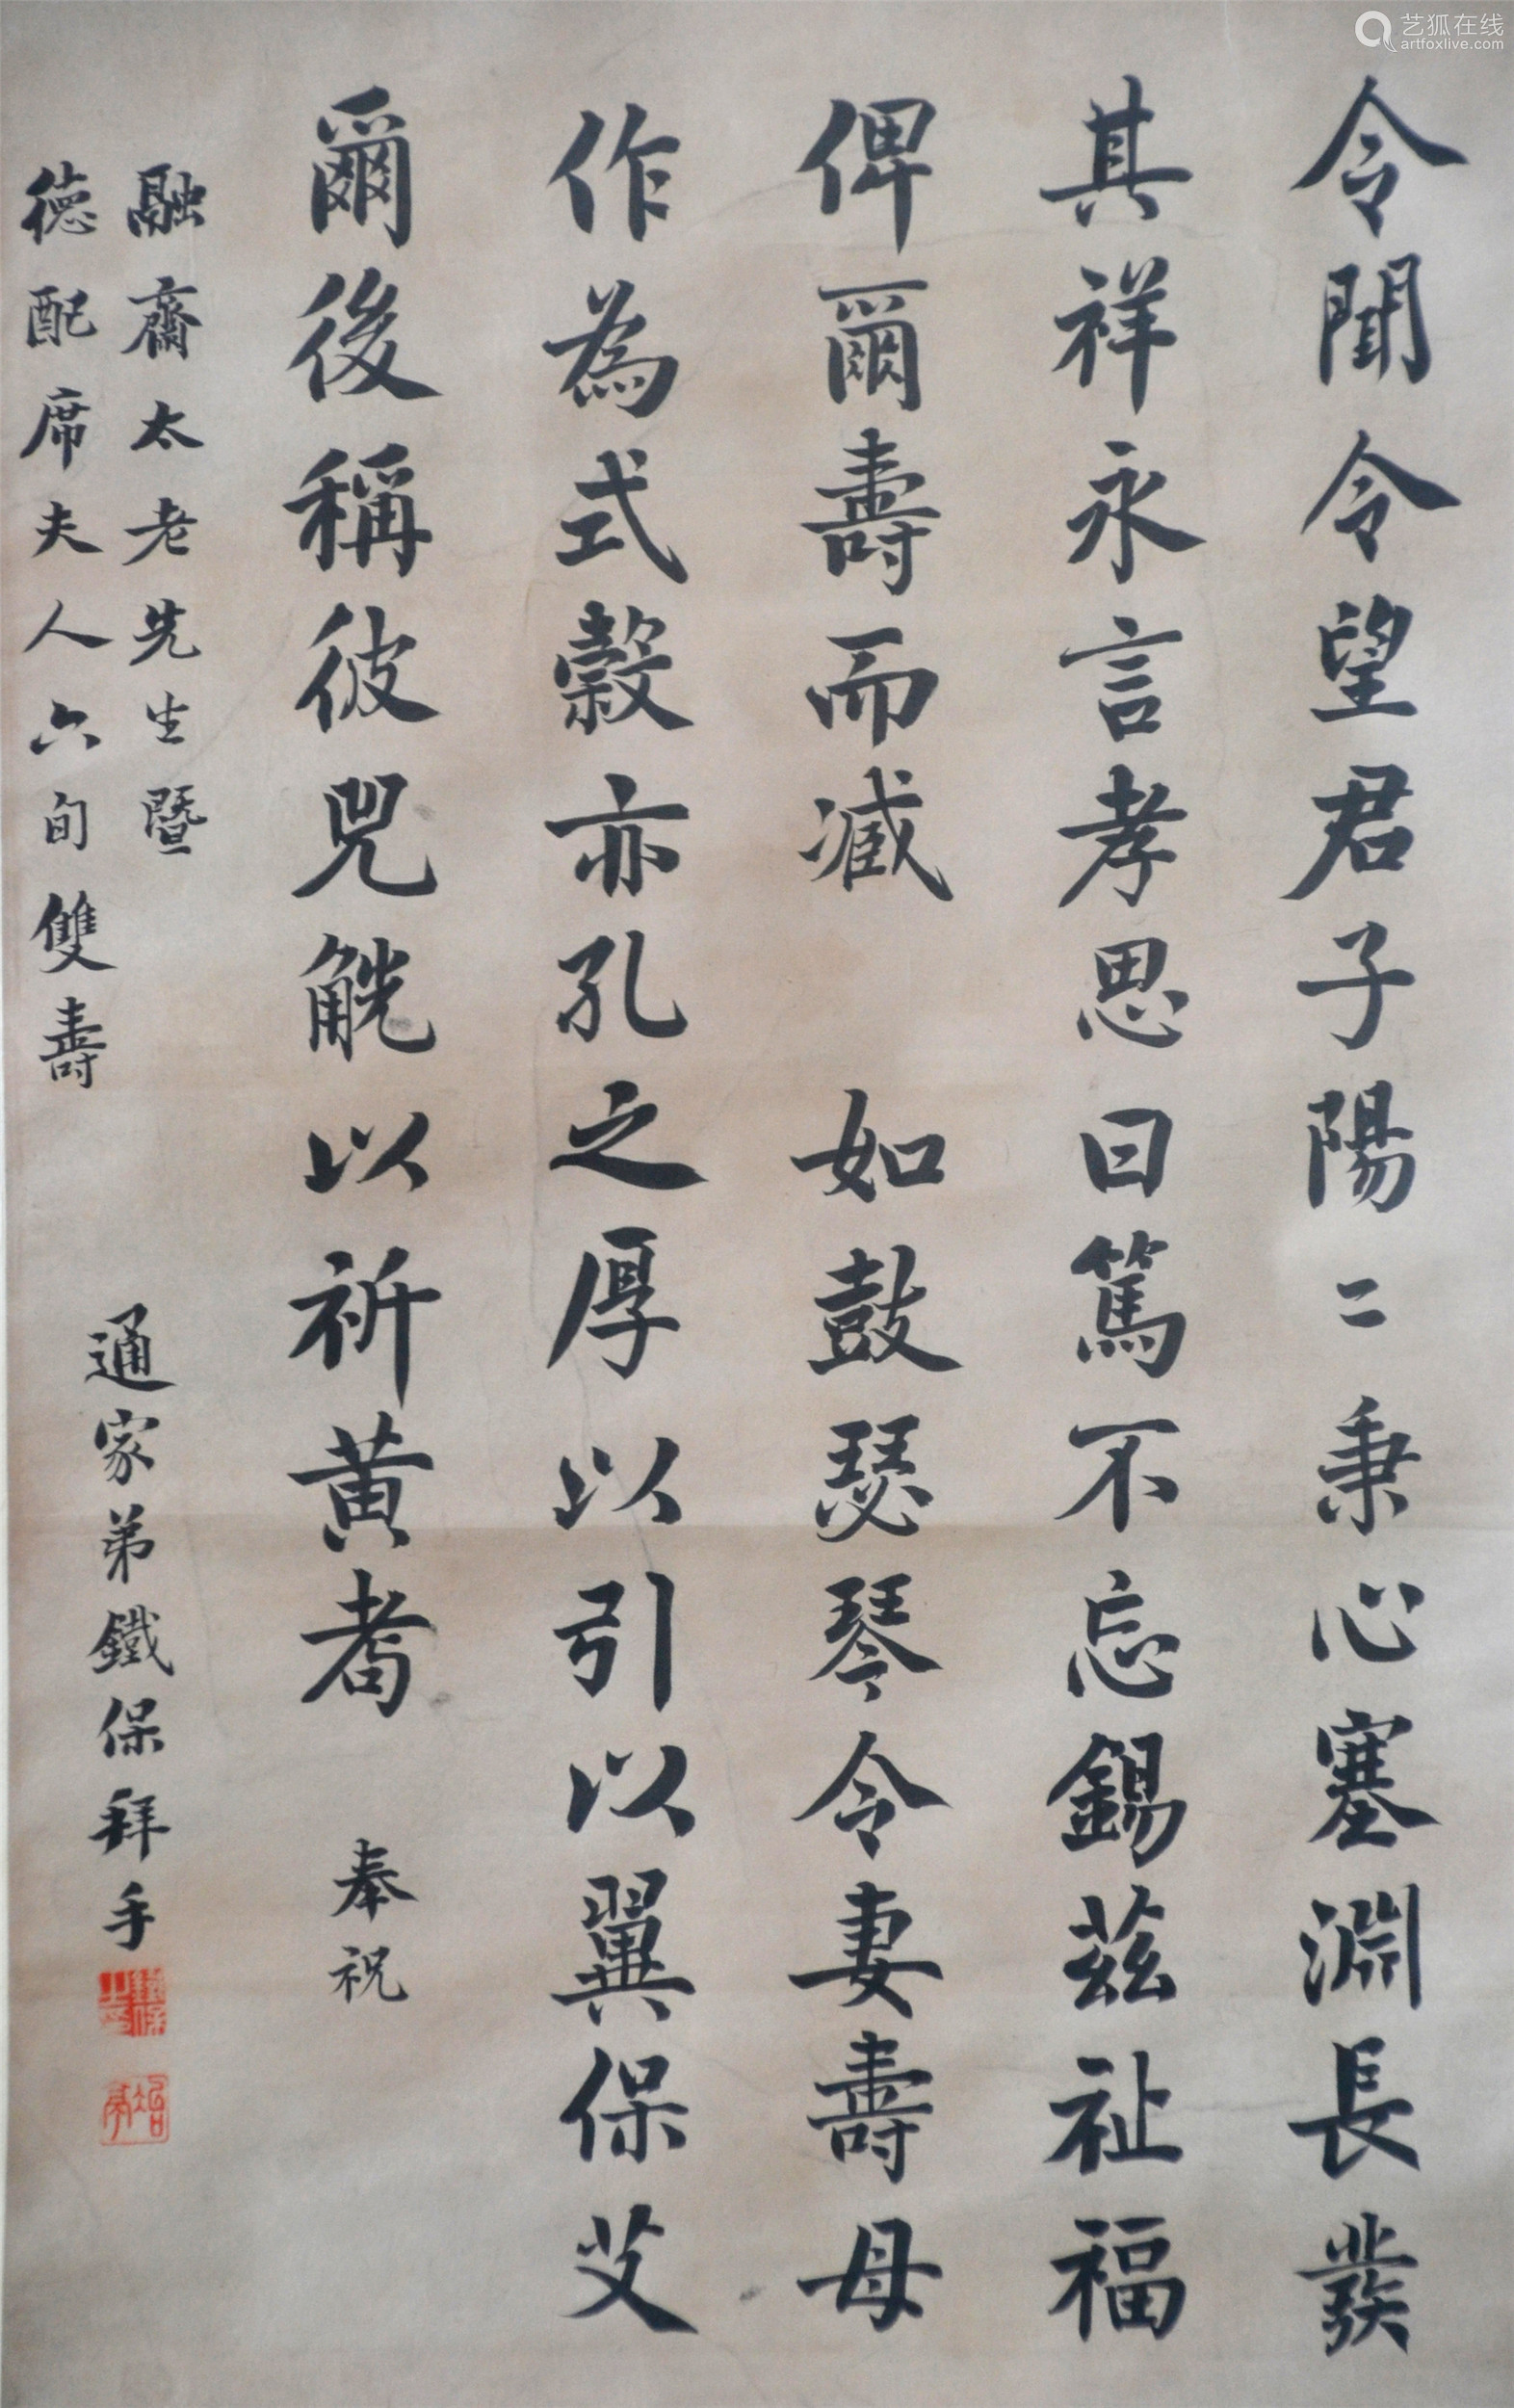 令聞令望君子陽二秉心塞淵長發
其祥永言孝思曰篤不忘錫茲祉福
俾爾壽而臧 如鼓瑟琴令妻壽母
作為式穀亦孔之厚以引以翼保艾
爾後稱彼兕觥以祈黃耇 奉祝
融齋太老先生暨
德配席夫人六旬雙壽
通家弟鐵保拜手
艺狐在线
artfoxlive.com